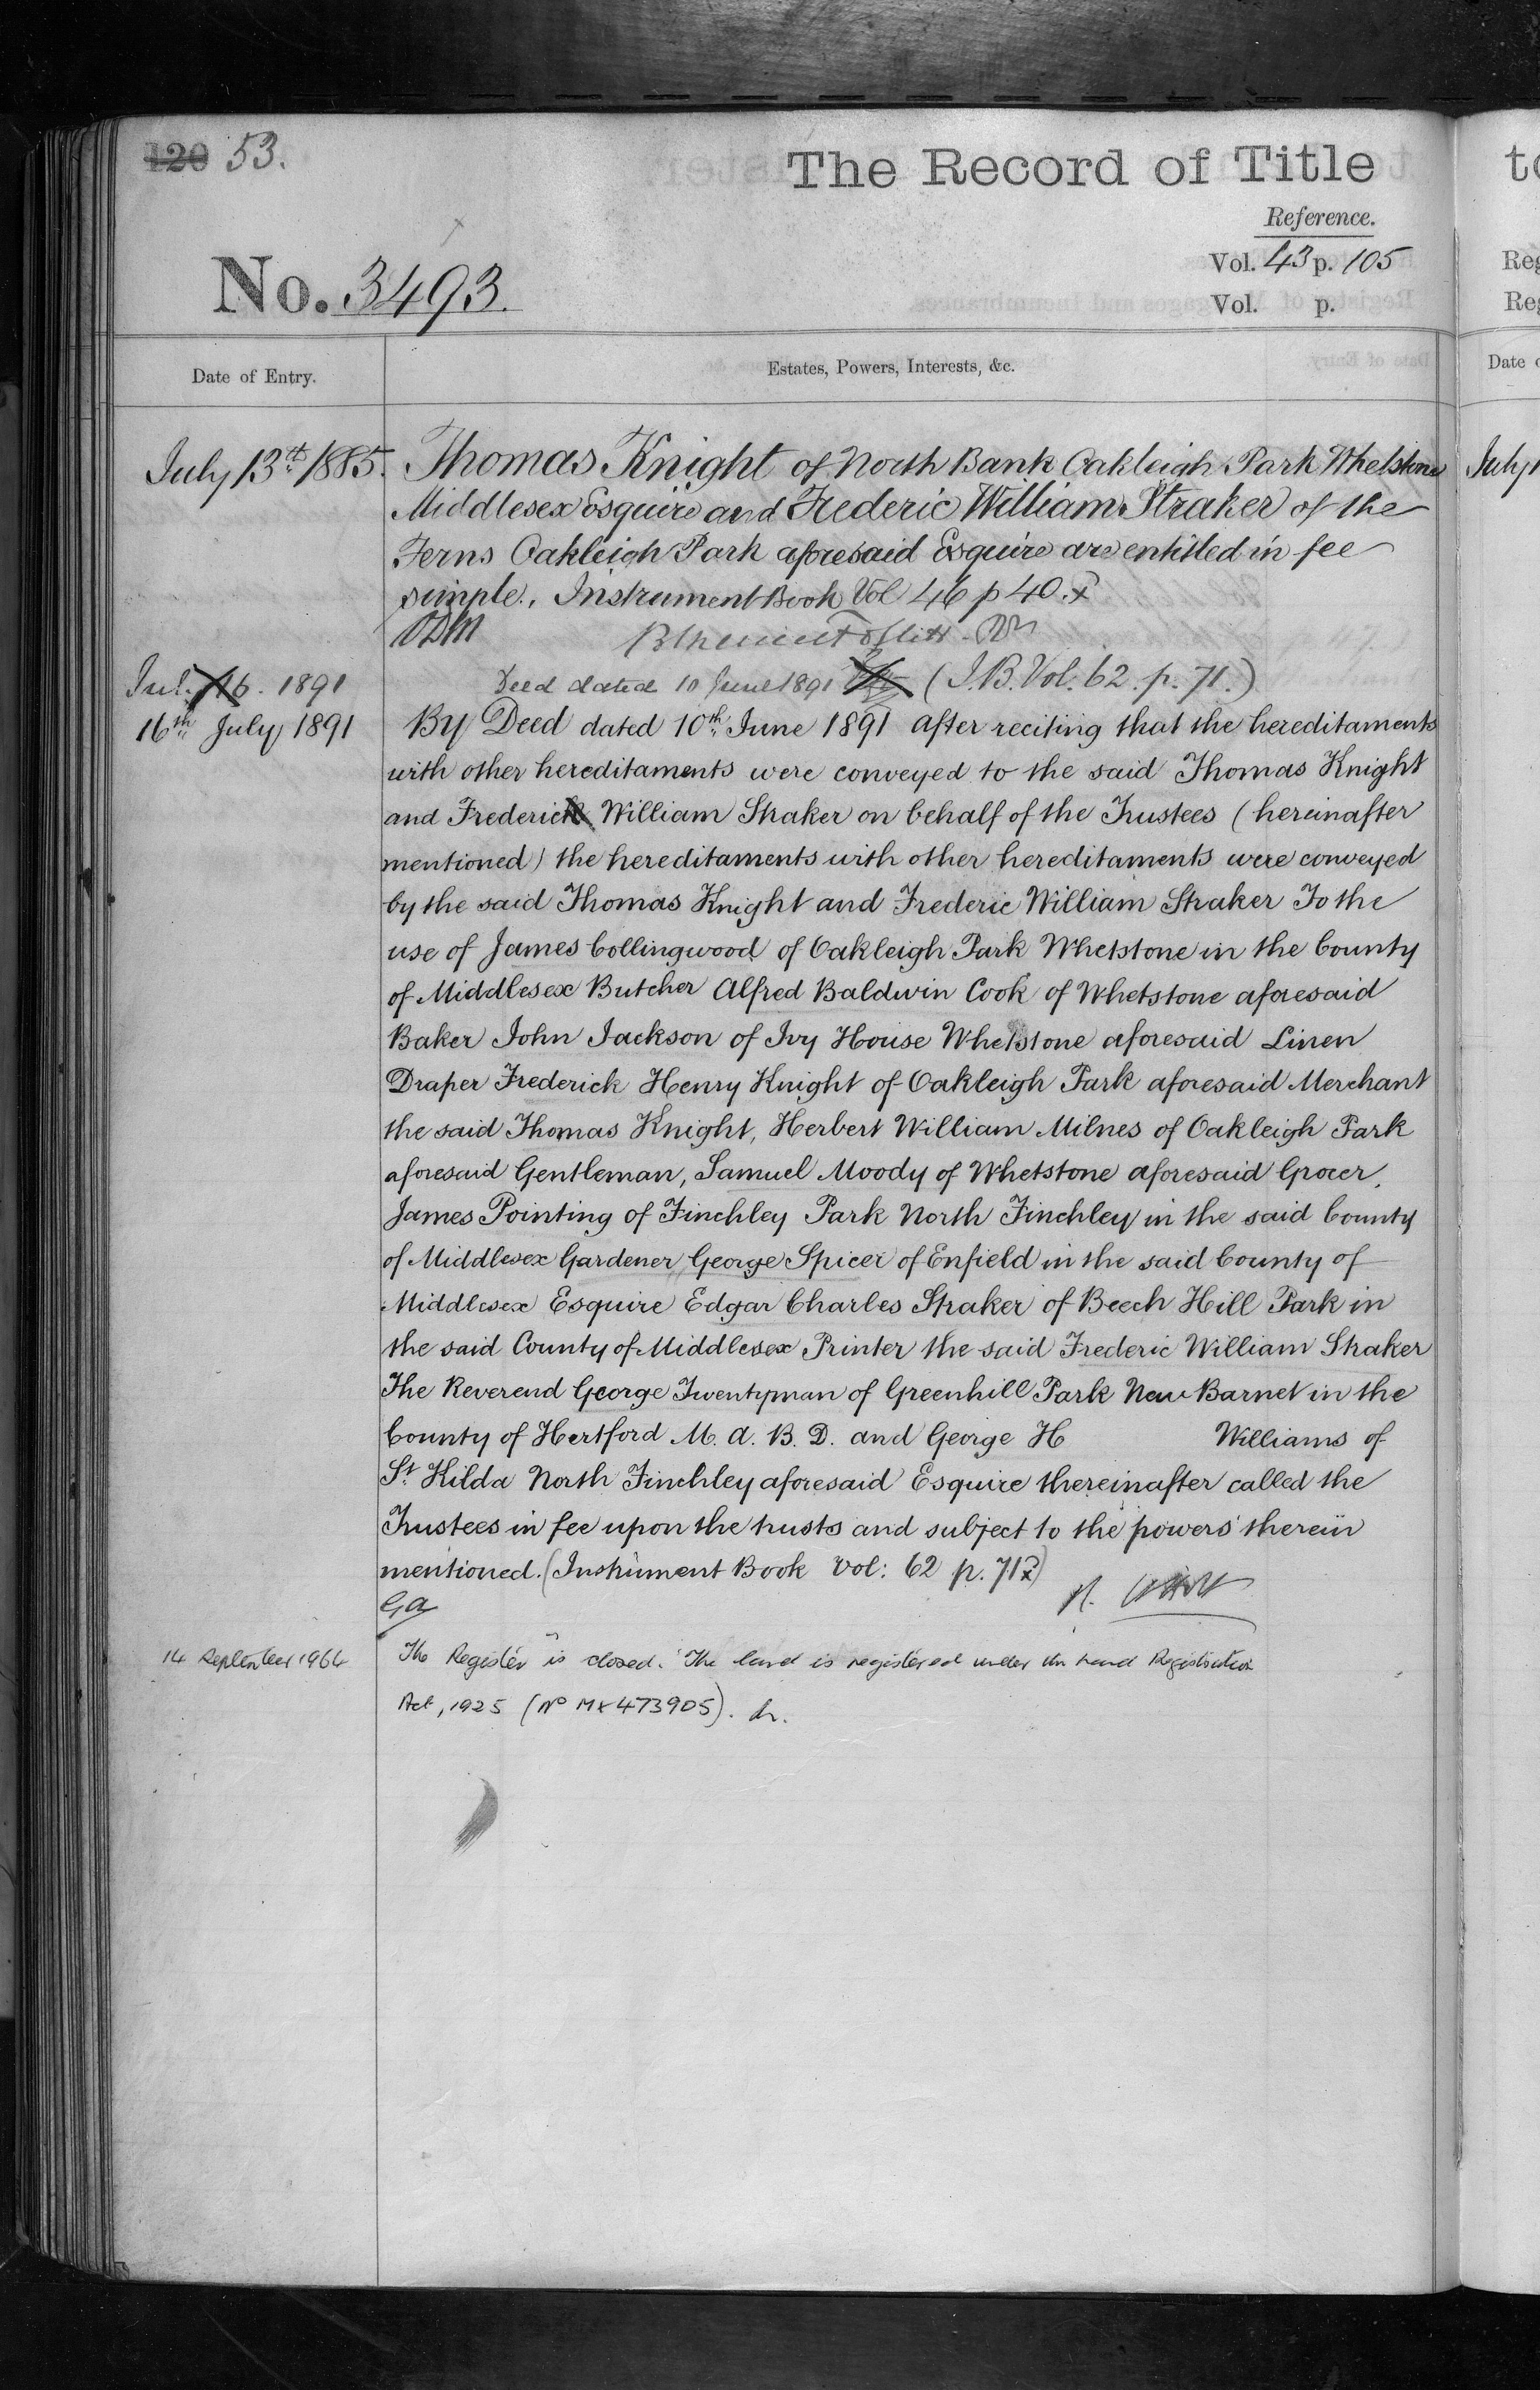 120 53.
The Record of Title
Reference.
Vol. 43 p. 105
No. 3493.
Vol. p.
Date of Entry.
Estates, Powers, Interests, &c.
July 13th 1885. Thomas Knight of North Bank Oakleigh Park Whetstone
Middlesex Esquire and Frederic William Straker of the
Ferns Oakleigh Park aforesaid Esquire are entitled in fee
simple. Instrument Book Vol 46 p 40.
July 16. 1891 Deed dated 10 June 1891 (I.B. Vol. 62. p. 71.)
16th July 1891 By Deed dated 10th June 1891 after reciting that the hereditaments
with other hereditaments were conveyed to the said Thomas Knight
and Frederick William Straker on behalf of the Trustees (hereinafter
mentioned) the hereditaments with other hereditaments were conveyed
by the said Thomas Knight and Frederic William Straker To the
use of James Collingwood of Oakleigh Park Whetstone in the County
of Middlesex Butcher Alfred Baldwin Cook of Whetstone aforesaid
Baker John Jackson of Ivy House Whetstone aforesaid Linen
Draper Frederick Henry Knight of Oakleigh Park aforesaid Merchant
the said Thomas Knight, Herbert William Milnes of Oakleigh Park
aforesaid Gentleman, Samuel Moody of Whetstone aforesaid Grocer,
James Pointing of Finchley Park North Finchley in the said County
of Middlesex Gardener George Spicer of Enfield in the said County of
Middlesex Esquire Edgar Charles Straker of Beech Hill Park in
the said County of Middlesex Printer the said Frederic William Straker
The Reverend George Twentyman of Greenhill Park New Barnet in the
County of Hertford M. A. B. D. and George H Williams of
St. Kilda North Finchley aforesaid Esquire thereinafter called the
Trustees in fee upon the trusts and subject to the powers therein
mentioned. (Instrument Book Vol: 62 p. 71)
14 September 1964 The Register is closed. The land is registered under the Land Registration
Act, 1925 (No MX473905).
to
Reg
Reg
Date o
July 1